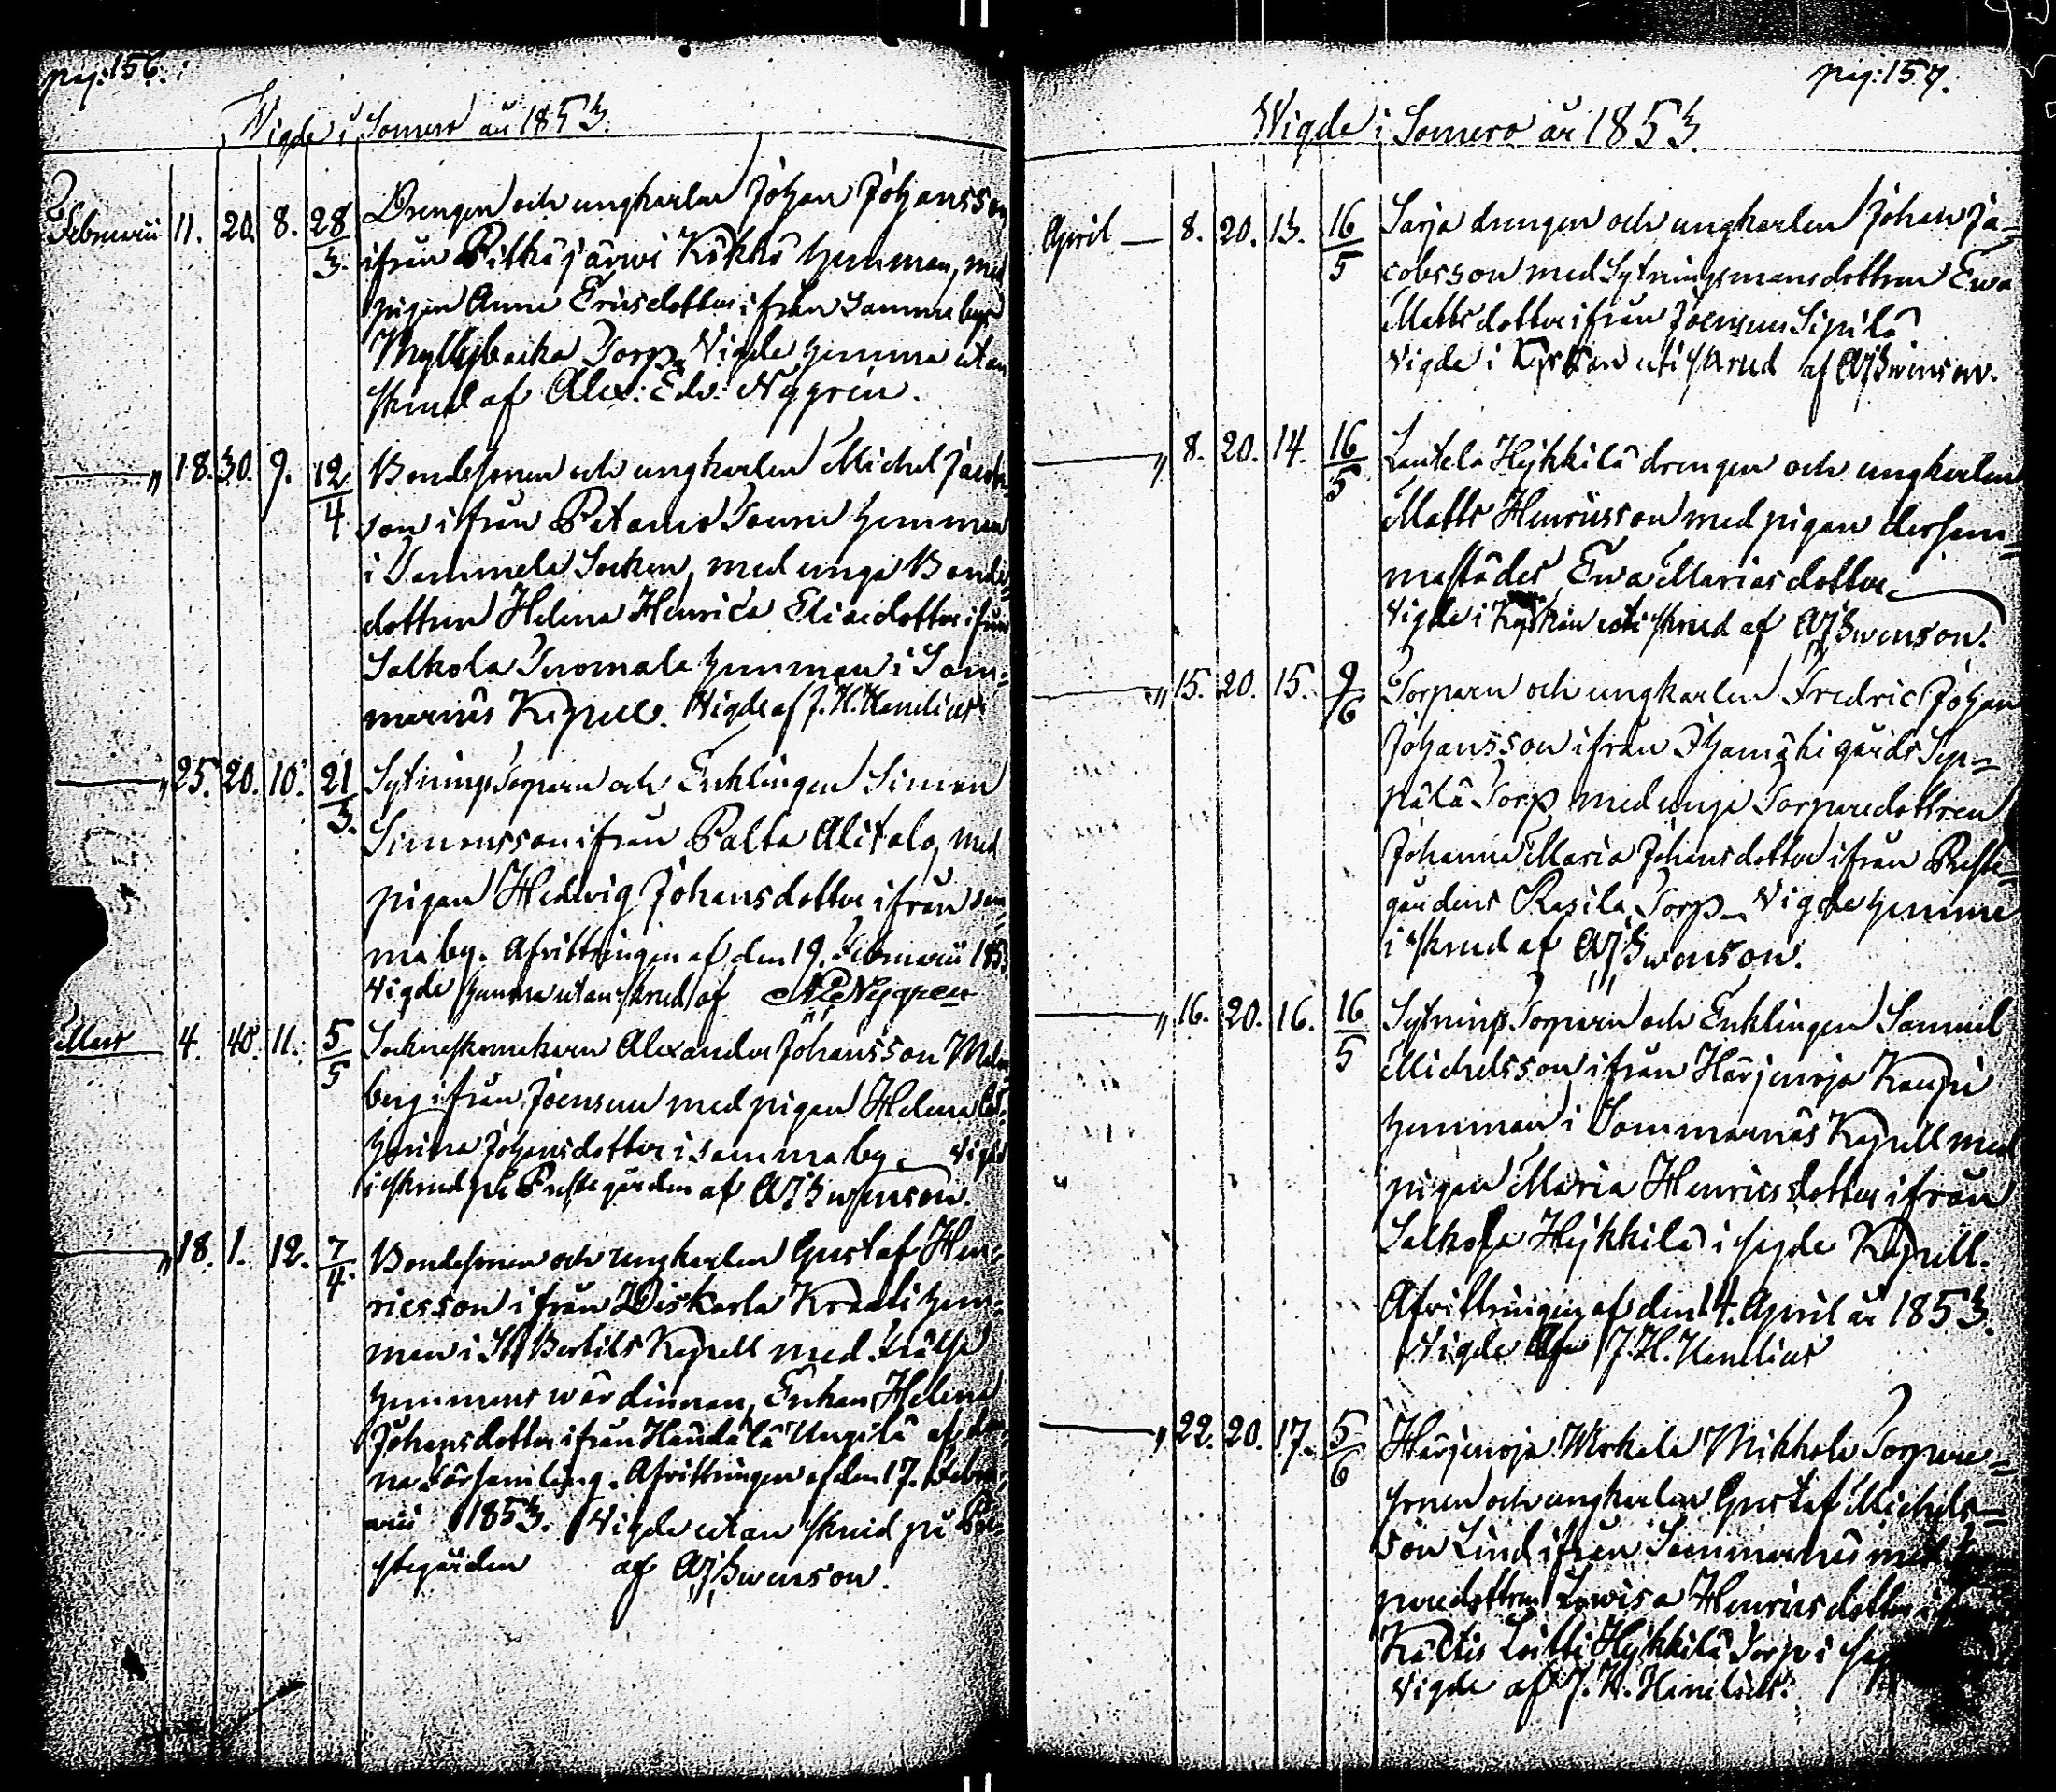 pag: 156.
Wigde i Somero år 1853.
Februarii 11. 20. 8. 28/3. Drengen och ungkarlen Johan Johansson
ifrån Pitkäjärwi Kökkö hemman, med
pigan Anna Ericsdotter ifrån samma by
Myllybacka Torp. Vigde hemma utan
skrud af Alex: Edv: Nygrén.
—„ 18. 30. 9. 12/4 Bondesonen och ungkarlen Michel Jacobs-
son ifrån Patamo hemman
i Tammela Socken, med unga Bonde-
dottren Helena Henrica Eliaedotter ifrån
Salkola Tuomala hemman i Som-
marnäs Kapell. Vigde af J. H. Henelius
—„ 25. 20. 10. 21/3. Sytnings Torparn och Enklingen Simon
Simonsson ifrån Palta Alitalo, med
pigan Hedvig Johansdotter ifrån sam-
ma by. Afvittringen af den 19. Februarii 1853
Vigde hemma utan skrud af AENygren
Mars 4. 40. 11. 5/5 Sockneskomakaren Alexander Johansson
berg ifrån Joensuu med pigan Helena
Johansdotter i samma by. Vigde
i skrud på Prestegården af AJSwenson.
—„ 18. 1. 12. 7/4. Bondesonen och ungkarlen Gustaf Hen-
ricsson ifrån Diskarla Kraati hem-
man i St Bertils Kapell med Frälse
hemmans wärdinnan, Enkan Helena
Johansdotter ifrån Häntälä Ungila af den-
na Församling. Afvittringen af den 17. Febru-
arii 1853. Vigde utan skrud på Pre-
stegården af AJSwenson.
pag: 157.
Wigde i Somero år 1853.
April — 8. 20. 13. 16/5 Sarja drengen och ungkarlen Johan Ja-
cobsson med Sytningsmansdottren Ewa
Mattsdotter ifrån Joensuu Sipilä
Vigde i Kyrkan uti skrud af AJSwenson.
—„ 8. 20. 14. 16/5 Lautela Hykkilä drengen och ungkarlen
Matts Henricsson med pigan dersam-
mastädes Ewa Mariasdotter.
Vigde i Kyrkan uti skrud af AJSwenson.
—„ 15. 20. 15. 9/6 Torparn och ungkarlen Fredric Johan
Johansson ifrån Ihamäki gårds Sep-
pälä Torp med unga Torparedottren
Johanna Maria Johansdotter ifrån Preste-
gårdens Rasila Torp. Vigde hemma
i skrud af AJSwenson.
—„ 16. 20. 16. 16/5 Sytnings Torparn och Enklingen Samuel
Michelsson ifrån Härjenoja Kauppi
hemman i Sommarnäs Kapell med
pigan Maria Henricsdotter ifrån
Salkola Hykkilä i sagde Kapell.
Afvittringen af den 14. April år 1853.
Vigde af J. H. Henelius
—„ 22. 20. 17. 5/6 Härjenoja Werkala Mikkola Torpare-
sonen och ungkarlen Gustaf Michels-
son Lind ifrån Sommarnäs med
paredottren Lowisa Henricsdotter
Kältis Hykkilä Torp i
Vigde af J. H. Henelius.